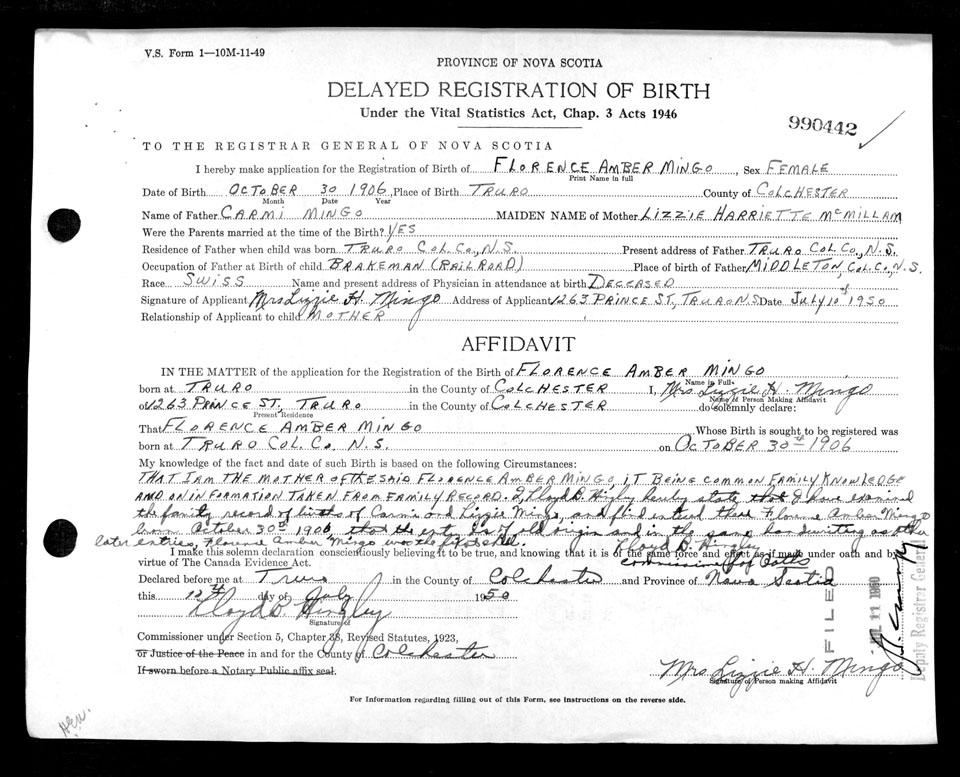 V.S. Form 1—10M-11-49
PROVINCE OF NOVA SCOTIA
DELAYED REGISTRATION OF BIRTH
Under the Vital Statistics Act, Chap. 3 Acts 1946
990442
TO THE REGISTRAR GENERAL OF NOVA SCOTIA
I hereby make application for the Registration of Birth of FLORENCE AMBER MINGO, Sex FEMALE
Print Name in full
Date of Birth OCTOBER 30 1906, Place of Birth TRURO County of COLCHESTER
Month Date Year
Name of Father CARMI MINGO MAIDEN NAME of Mother LIZZIE HARRIETTE McMILLAM
Were the Parents married at the time of the Birth? YES
Residence of Father when child was born TRURO COL. CO., N.S. Present address of Father TRURO COL. CO., N.S.
Occupation of Father at Birth of child BRAKEMAN (RAILROAD) Place of birth of Father MIDDLETON, COL. CO., N.S.
Race SWISS Name and present address of Physician in attendance at birth DECEASED
Signature of Applicant Mrs Lizzie H. Mingo Address of Applicant 263 PRINCE ST, TRURO N.S. Date July 10 1950
Relationship of Applicant to child MOTHER
AFFIDAVIT
IN THE MATTER of the application for the Registration of the Birth of FLORENCE AMBER MINGO
Name in Full
born at TRURO in the County of COLCHESTER I, Mrs Lizzie H. Mingo
Name of Person Making Affidavit
of 263 PRINCE ST, TRURO in the County of COLCHESTER do solemnly declare:
Present Residence
That FLORENCE AMBER MINGO Whose Birth is sought to be registered was
born at TRURO COL. CO. N.S. on OCTOBER 30th 1906
My knowledge of the fact and date of such Birth is based on the following Circumstances:
THAT I AM THE MOTHER OF THE SAID FLORENCE AMBER MINGO, IT BEING COMMON FAMILY KNOWLEDGE
AND ON INFORMATION TAKEN FROM FAMILY RECORD. I, Lloyd B. Hingley hereby state that I have examined
the family record of births of Carmi and Lizzie Mingo, and find entered there Florence Amber Mingo
born October 30th 1906, that the entry is of old origin and in the same handwriting as other
later entries, Florence Amber Mingo
Lloyd B. Hingley
I make this solemn declaration conscientiously believing it to be true, and knowing that it is of the same force and effect as if made under oath and by
commissioner of Oaths
virtue of The Canada Evidence Act.
Declared before me at Truro in the County of Colchester and Province of Nova Scotia
this 10th day of July 1950
Lloyd B. Hingley
Signature of
Commissioner under Section 5, Chapter 38, Revised Statutes, 1923,
or Justice of the Peace in and for the County of Colchester
If sworn before a Notary Public affix seal.
Mrs Lizzie H. Mingo
Signature of Person making Affidavit
FILED
Deputy Registrar General
For Information regarding filling out of this Form, see instructions on the reverse side.